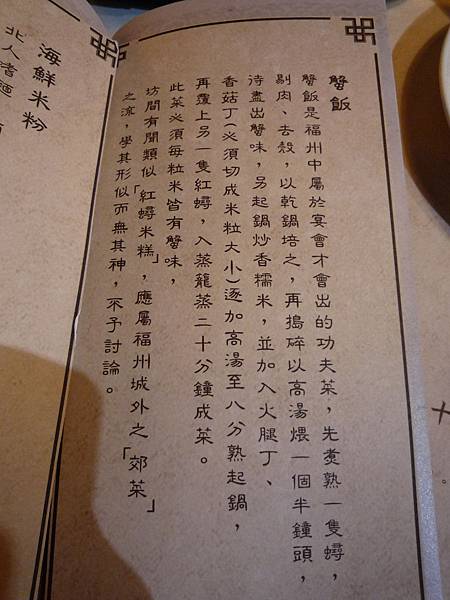 蟹飯
蟹飯是福州中屬於宴會才會出的功夫菜，先煮熟一隻蟳，
剔肉、去殼，以乾鍋焙之，再搗碎以高湯煨一個半鐘頭，
待盡出蟹味，另起鍋炒香糯米，並加入火腿丁、
香菇丁(必須切成米粒大小)逐加高湯至八分熟起鍋，
再覆上另一隻紅蟳，入蒸籠蒸二十分鐘成菜。
此菜必須每粒米皆有蟹味，
坊間有聞類似「紅蟳米糕」，應屬福州城外之「郊菜」
之流，學其形似而無其神，不予討論。
海鮮米粉
北人嗜麵
十